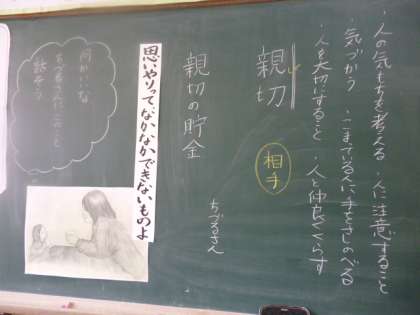 ・人の気もちを考える ・人に注意すること
・気づかう ・こまっている人に手をさしのべる
・人を大切にすること ・人と仲良くくらす
親切
相手
親切の貯金
ちづるさん
思いやりって、なかなかできないものよ
何かいいな